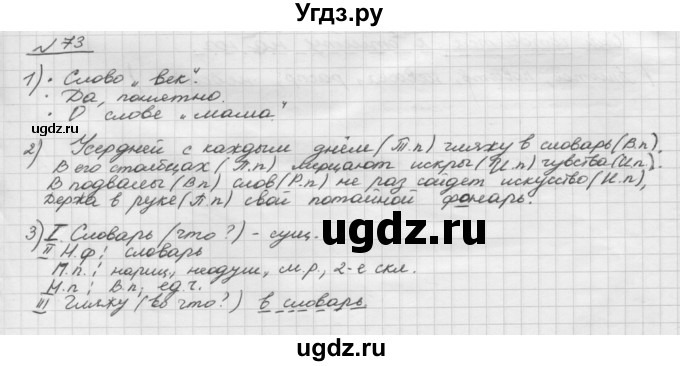 Угдз.ру
№ 73
1) · Слово „век".
· Да, понятно.
· О слове „мама"
2) Усердней с каждым днём (Т.п) гляжу в словарь (В.п).
В его столбцах (П.п) мерцают искры (И.п) чувства (И.п).
В подвалы (В.п) слов (Р.п) не раз сойдёт искусство (И.п),
Держа в руке (П.п) свой потайной фонарь.
3) I. Словарь (что?) – сущ.
II Н.ф: словарь
П.п.: нариц, неодуш, м.р, 2-е скл.
Н.п: В.п; ед.ч.
III Гляжу (во что?) в словарь
©ugdz.ru
©ugdz.ru
©ugdz.ru
©ugdz.ru
ugdz.ru